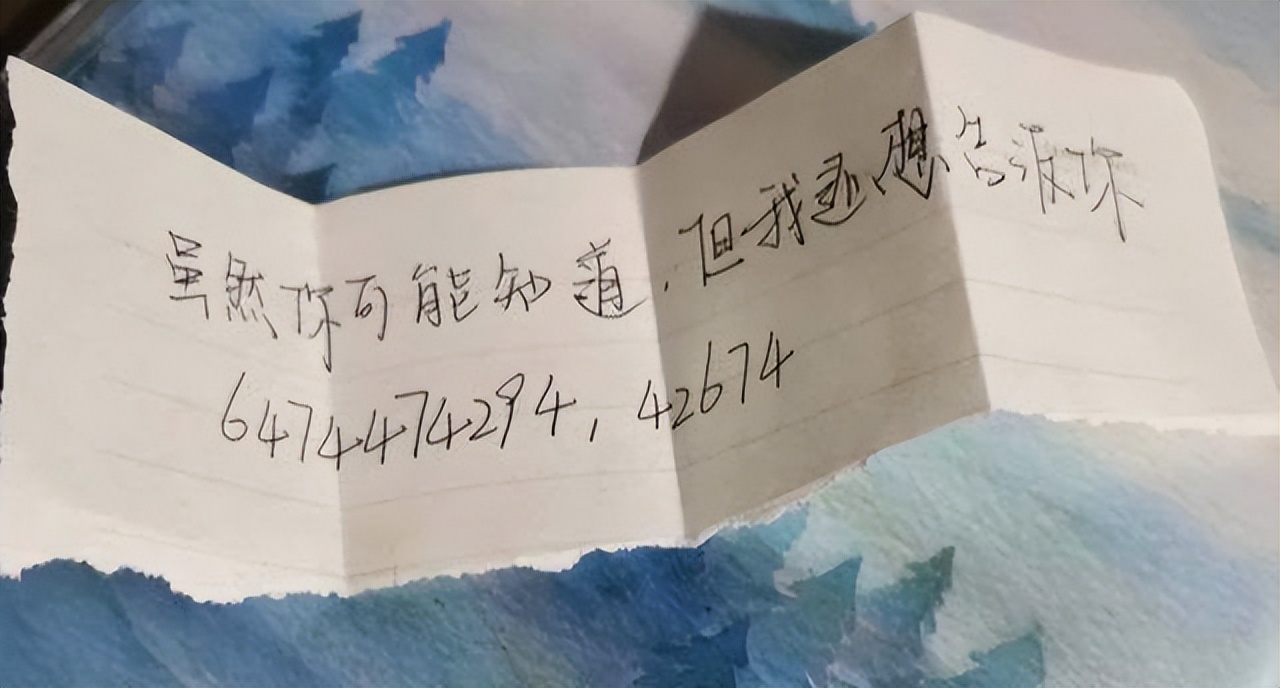 虽然你可能知道.但我还想告诉你
6474474294,42674